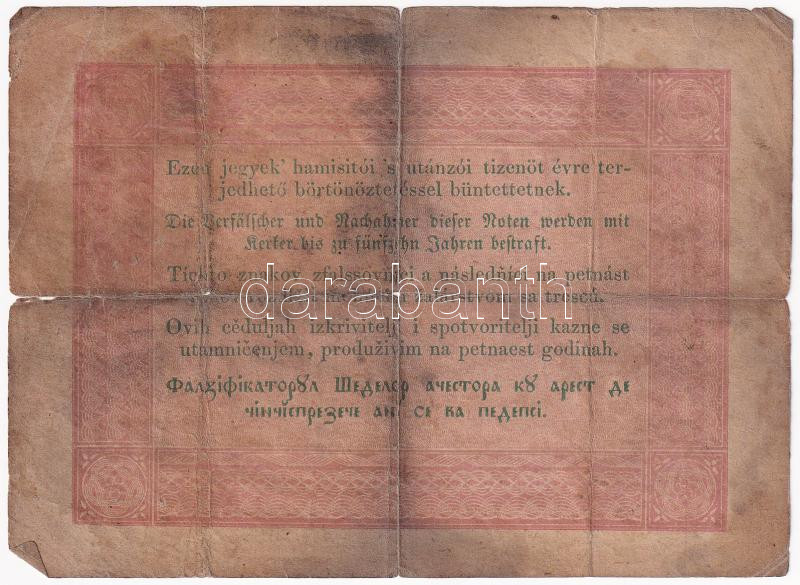 Ezen jegyek' hamisitói 's utánzói tizenöt évre ter-
jedhető börtönöztetéssel büntettetnek.
Die Verfälscher und Nachahmer dieser Noten werden mit
Kerker bis zu fünfzehn Jahren bestraft.
Tíchto znakov zfalssovňíci a následňíci na petnást
žalárstvom sa trescú.
darabanth
Ovih cěduljah izkrivitelji i spotvoritelji kazne se
utamničenjem, produživim na petnaest godinah.
Фалсіфікаторꙋл Шеделор ачестора кꙋ арест де
чінчіспрезече ані се ва педепсі.